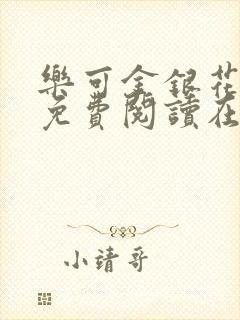 樂可金銀花
免費閱讀在
小靖哥